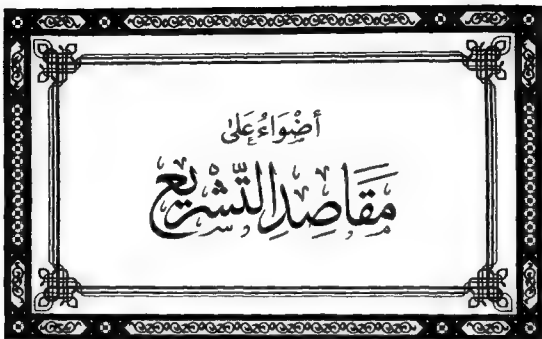 أَضْوَاءُ عَلَى
مَقَاصِدِ التَّشْرِيعِ